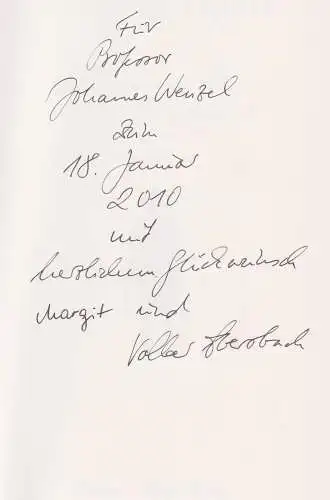 Für
Professor
Johannes Wenzel
zum
18. Januar
2010
mit
herzlichem Glückwunsch
Margit und
Volker Ebersbach